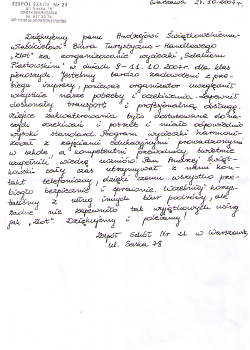 ZESPÓŁ SZKÓŁ Nr 21
Warszawa 24.10.2007r.
Dziękujemy panu Andrzejowi Świątkowskiemu
właścicielowi Biura Turystyczno - Handlowego
"Zlot" za zorganizowanie wycieczki Szlakiem
Piastowskim w dniach 8-11.10.2007r. dla klas
pierwszych. Jesteśmy bardzo zadowoleni z prze-
biegu imprezy, ponieważ organizator uwzględnił
wszystkie nasze potrzeby i oczekiwania, zapewnił
doskonały transport i profesjonalną obsługę.
Miejsca zakwaterowania było dostosowane do na-
szych oczekiwań i potrzeb i miało odpowiednio
wysoki standard. Program wycieczki harmoni-
zował z zajęciami edukacyjnymi prowadzonymi
w szkole a kompetentni przewodnicy świetnie
uzupełnili wiedzę uczniów. Pan Andrzej Świąt-
kowski cały czas utrzymywał z nami kon-
takt telefoniczny dzięki czemu wszystko prze-
biegło bezpiecznie i sprawnie. Wcześniej korzy-
staliśmy z usług innych biur podróży, ale
żadne nie zapewniło tak wyjątkowych usług
jak "Zlot". Dziękujemy i polecamy!
Zespół Szkół Nr 21 w Warszawie
ul. Saska 78